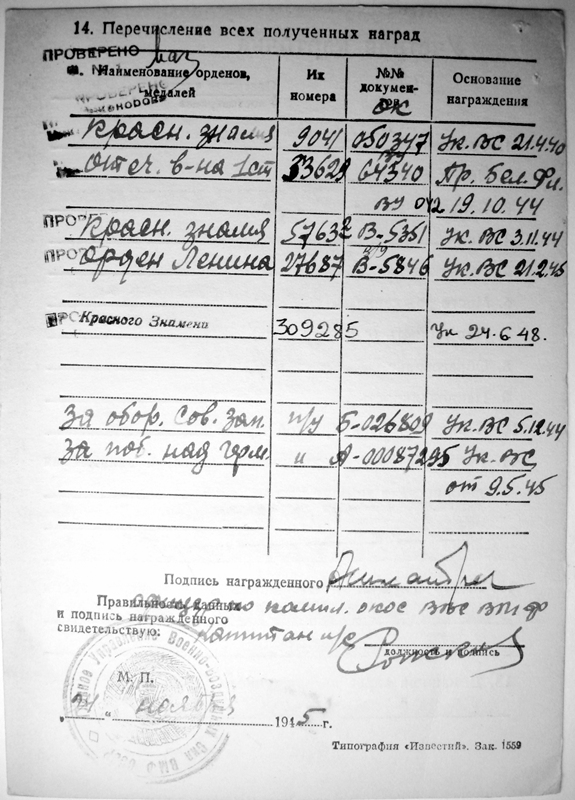 14. Перечисление всех полученных наград
ПРОВЕРЕНО
Наименование орденов, медалей
Их номера
№№ документов
Основание награждения
Красн. знамя 9041 050347 Ук. ВС 21.4.40
Отеч. в-на 1ст 33629 64340 Пр. Бел. Фл.
042 19.10.44
Красн. знамя 57632 В-5351 Ук. ВС 3.11.44
Орден Ленина 27687 В-5846 Ук. ВС 21.2.45
Красного Знамени 309285 Ук 24.6.48.
За обор. Сов. Зап. н/н Б-026809 Ук. ВС 5.12.44
За поб. над герм. А-00087295 Ук. ВС
от 9.5.45
Подпись награжденного
Правильность данных
и подпись награжденного
свидетельствую:
капитан
должность и подпись
М. П.
ноября 1945 г.
Типография «Известий». Зак. 1559